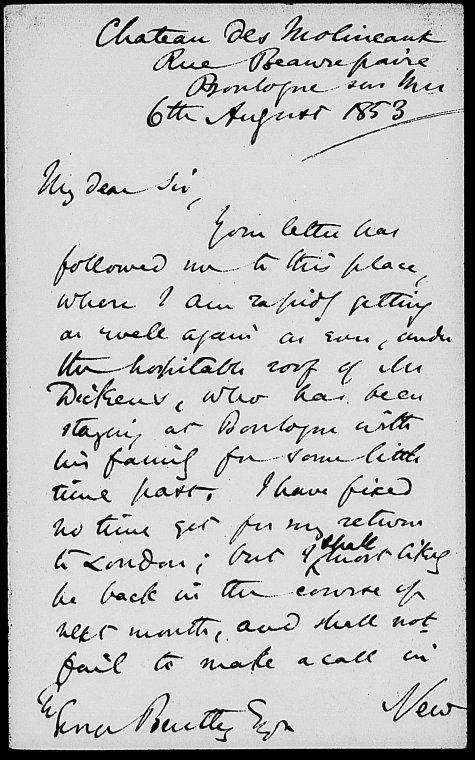 Chateau des Molineaux
Rue Beaurepaire
Boulogne sur Mer
6th August 1853
My dear Sir,
Your letter has
followed me to this place,
where I am rapidly getting
as well again as ever, under
the hospitable roof of Mr
Dickens, who has been
staying at Boulogne with
his family for some little
time past. I have fixed
no time yet for my return
to London; but I shall most likely
be back in the course of
next month, and shall not
fail to make a call in
New
George Bentley Esqr